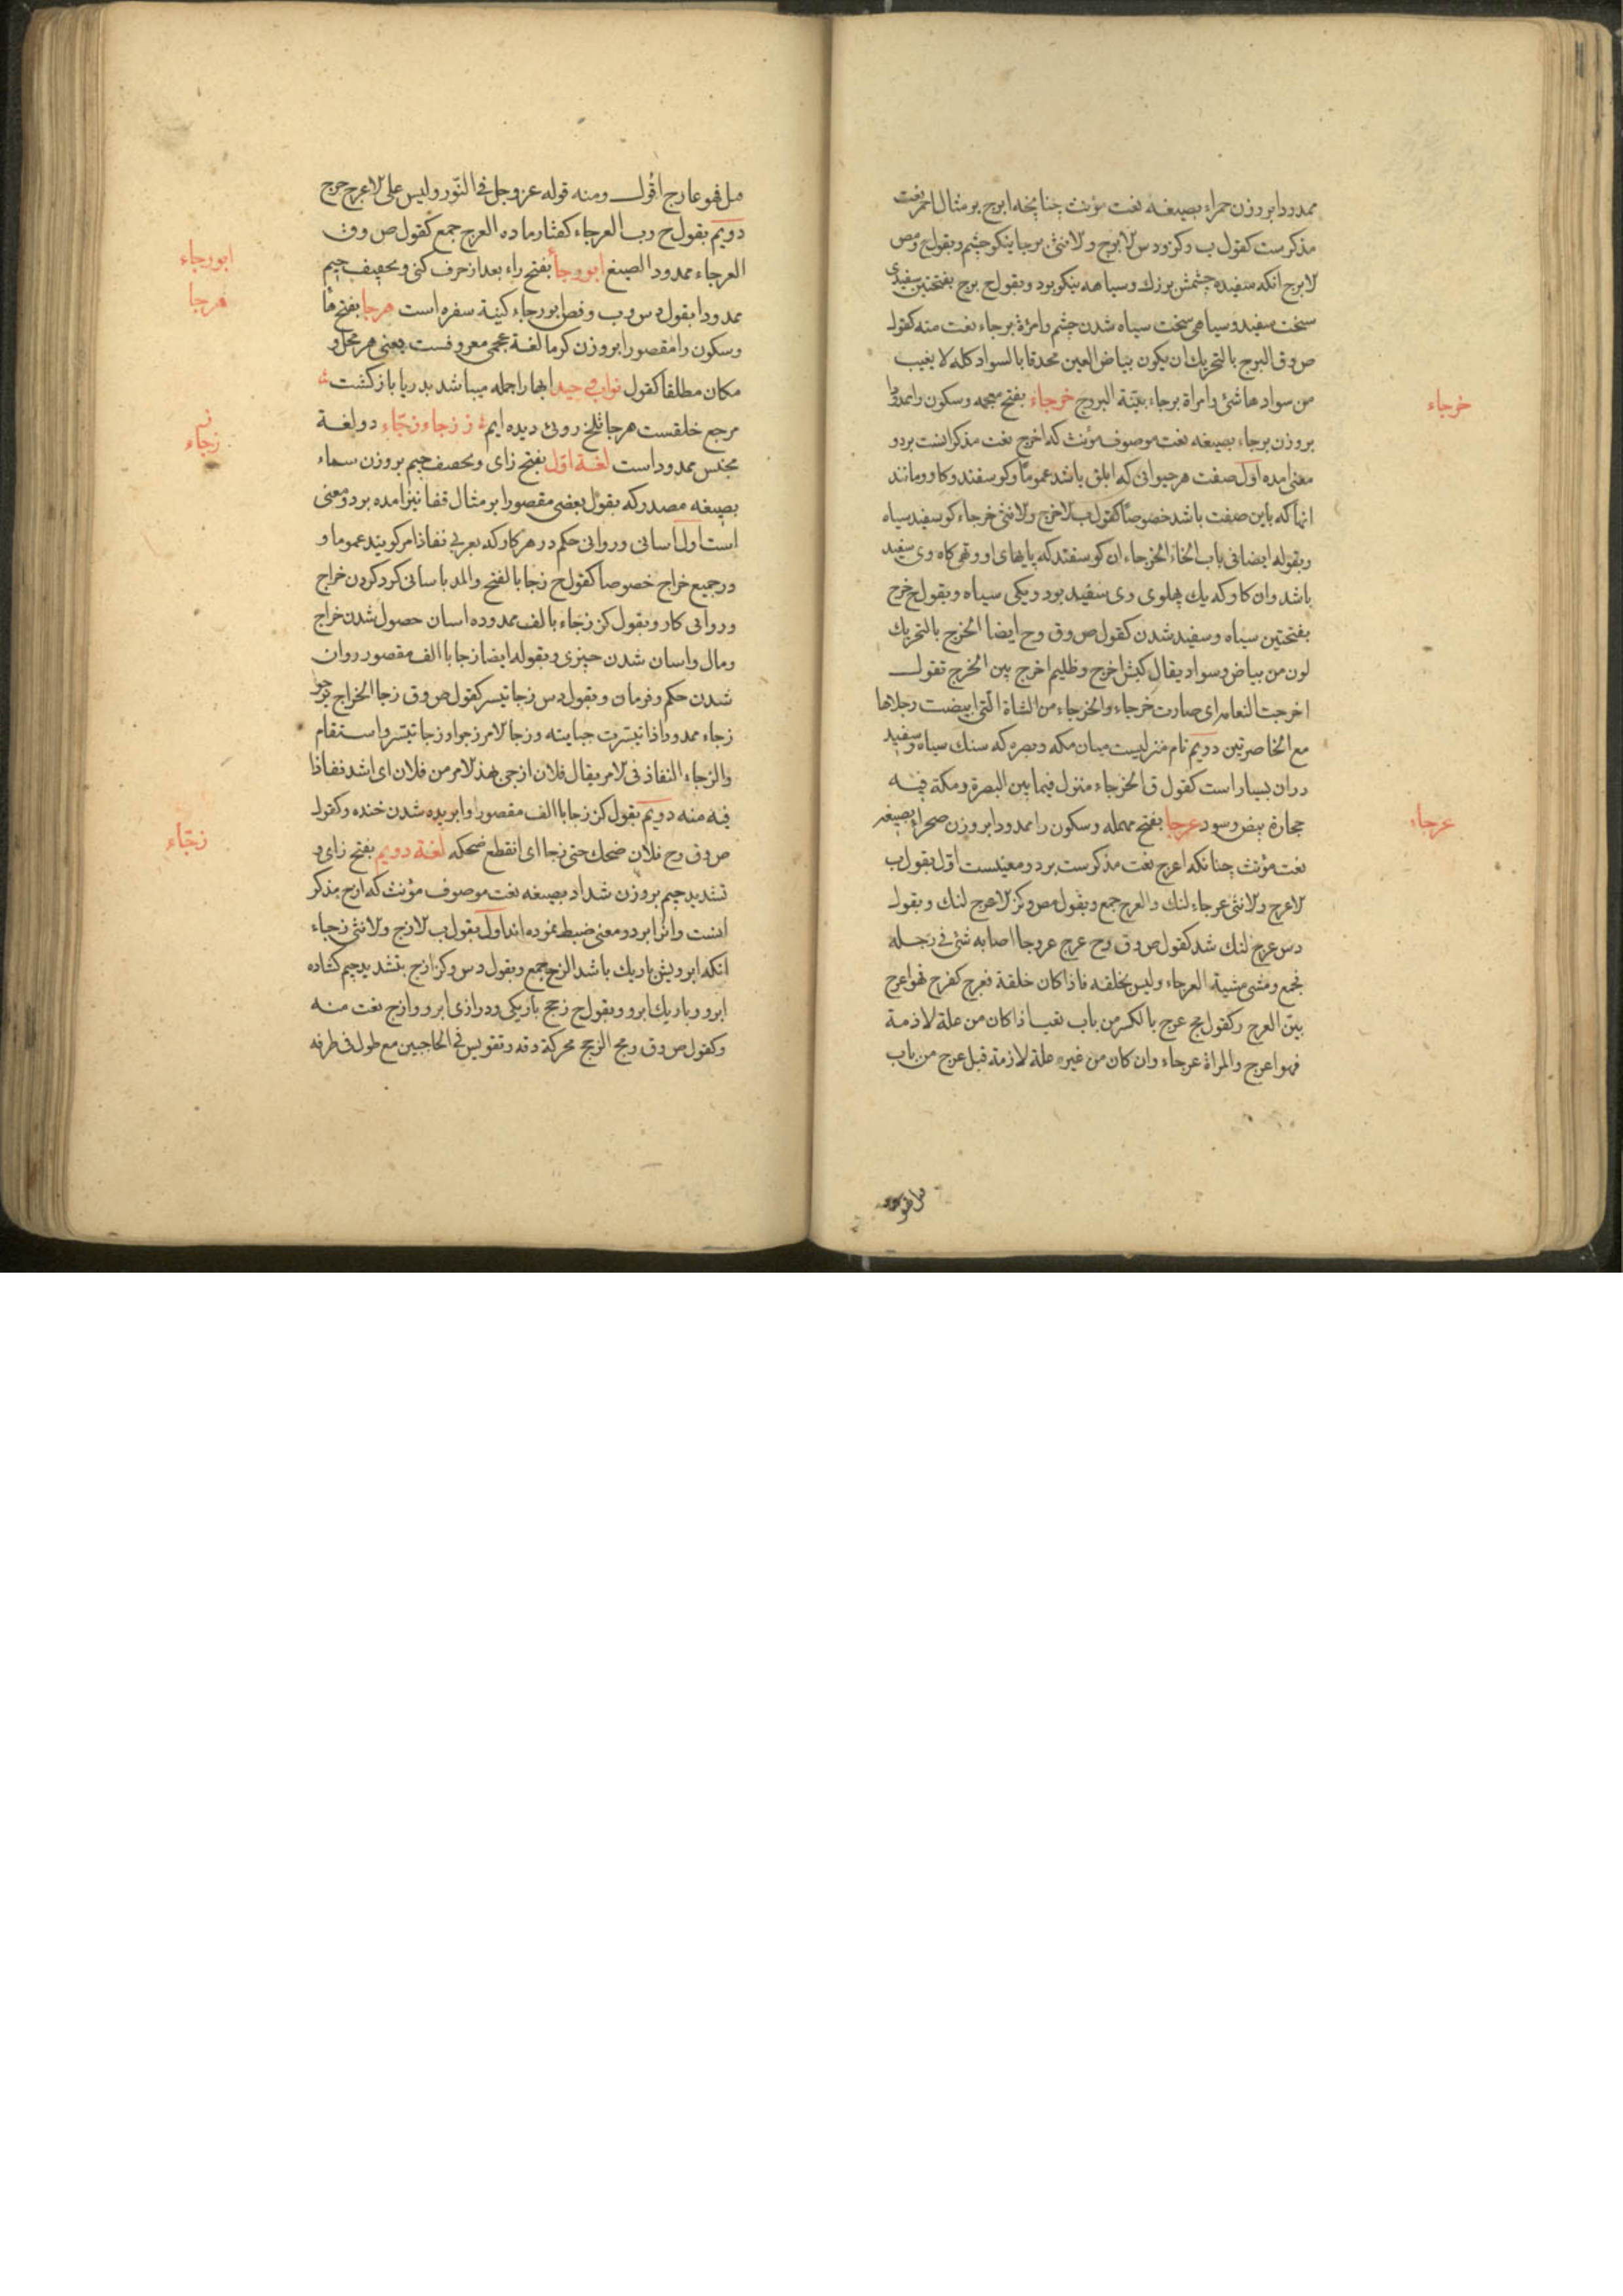 ممدودا بروزن حمراء بصیغه نعت مؤنث چنانچه ابرج بر مثال احمر نعت
مذکرست کقول ب وکز ودس الابرج والانثی برجا نیکو چشم وبقول ح ومص
الابرج انکه سفیده چشمش بزرك وسیاهه نیکو بود وبقول ح برج بفتحتین سفیدی
سخت سفید وسیاهی سخت سیاه شدن چشم وامرأة برجاء نعت منه کقول
ص وق البرج بالتحریك ان یکون بیاض العین محدقا بالسواد کله لا یغیب
من سوادها شئ وامراة برجاء بینة البرج خرجاء بفتح معجمه وسکون را ممدودا
خرجاء
بروزن برجاء بصیغه نعت موصوف مؤنث که اخرج نعت مذکر انست بر دو
معنی امده اول صفت هر حیوانی که ابلق باشد عموما وکوسفند وکاو ومانند
انها که باین صفت باشد خصوصا کقول ب الاخرج والانثی خرجاء کوسفید سیاه
وبقوله ایضا فی باب الخاء الخرجاء ان کوسفند که پایهای او وتهی کاه وی سفید
باشد وان کاو که یك پهلوی وی سفید بود ویکی سیاه وبقول ح خرج
بفتحتین سیاه وسفید شدن کقول ص وق وح ایضا الخرج بالتحریك
لون من بیاض وسواد یقال کبش اخرج وظلیم اخرج بین الخرج تقول
اخرجت النعامه ای صارت خرجاء والخرجاء من الشاة التی ابیضت رجلاها
مع الخاصرتین دویم نام منزلیست میان مکه وبصره که سنك سیاه وسفید
دران بسیار است کقول ق الخرجاء منزل فیما بین البصرة ومکة فیه
حجارة بیض وسود عرجا بفتح مهمله وسکون را ممدودا بروزن صحرا بصیغه
عرجاء
نعت مؤنث چنانکه اعرج نعت مذکرست بر دو معنیست اول بقول ب
الاعرج والانثی عرجاء لنك والعرج جمع وبقول مص وکز الاعرج لنك وبقول
دس عرج لنك شد کقول ص وق وح عرج عروجا اصابه شئ فی رجله
فجمع ومشی مشیة العرجاء ولیس بخلقه فاذا کان خلقة فعرج کفرح فهو اعرج
بین العرج وکقول مج عرج بالکسر من باب تعب اذا کان من علة لازمة
فهو اعرج والمراة عرجاء وان کان من غیر علة لازمة قیل عرج من باب
فهو عارج اقول ومنه قوله عز وجل فی النور ولیس علی الاعرج حرج
دویم بقول ح وب العرجاء کفتار ماده العرج جمع کقول ص وق
العرجاء ممدود الصبغ ابو رجاء بفتح راء بعد از حرف کنی وتخفیف جیم
ابورجاء
ممدودا بقول دس وب وفص ابورجاء کنیة سفره است هرجا بفتح ها
هرجا
وسکون را مقصورا بروزن کرما لغة عجمی معروفست یعنی هر محل و
مکان مطلقا کقول ابها راجمله میباشد بدریا بازکشت
مرجع خلقست هرجا تلخ رویی دیده ایم ز زجاء وزجّاء دو لغة
ز
زجاء
مجنس ممدود است لغة اول بفتح زای وتخفیف جیم بروزن سماء
بصیغه مصدر که بقول بعضی مقصورا بر مثال قفا نیز امده بر دو معنی
است اول اسانی وروانی حکم در هر کار که بعربی نفاذ امر کویند عموما و
در جمیع خراج خصوصا کقول ح زجا بالفتح والمد باسانی کرد کردن خراج
وروانی کار وبقول کز زجاء بالف ممدوده اسان حصول شدن خراج
ومال واسان شدن چیزی وبقوله ایضا زجا با الف مقصور روان
شدن حکم وفرمان وبقول دس زجا تیسر کقول ص وق زجا الخراج یزجو
زجاء ممدودا اذا تیسرت جبایته وزجا الامر زجوا وزجا تیسر واستقام
والزجاء النفاذ فی الامر یقال فلان ازجی بهذ الامر من فلان ای اشد نفاذا
فیه منه دویم بقول کز زجا با الف مقصور وا بریده شدن خنده وکقول
ص وق وح فلان ضحك حتی زجا ای انقطع ضحکه لغة دویم بفتح زای و
زجّاء
تشدید جیم بروزن شداد بصیغه نعت موصوف مؤنث که ازج مذکر
انست وانرا بر دو معنی ضبط نموده اند اول بقول ب الازج والانثی زجاء
انکه ابرویش باریك باشد الزج جمع وبقول دس وکز ازج بتشدید جیم کشاده
ابرو وباریك ابرو وبقول ح زجج باریکی ودرازی ابرو وازج نعت منه
وکقول ص وق ومج الزجج محرکة دقه وتقویس فی الحاجبین مع طول فی طرفه